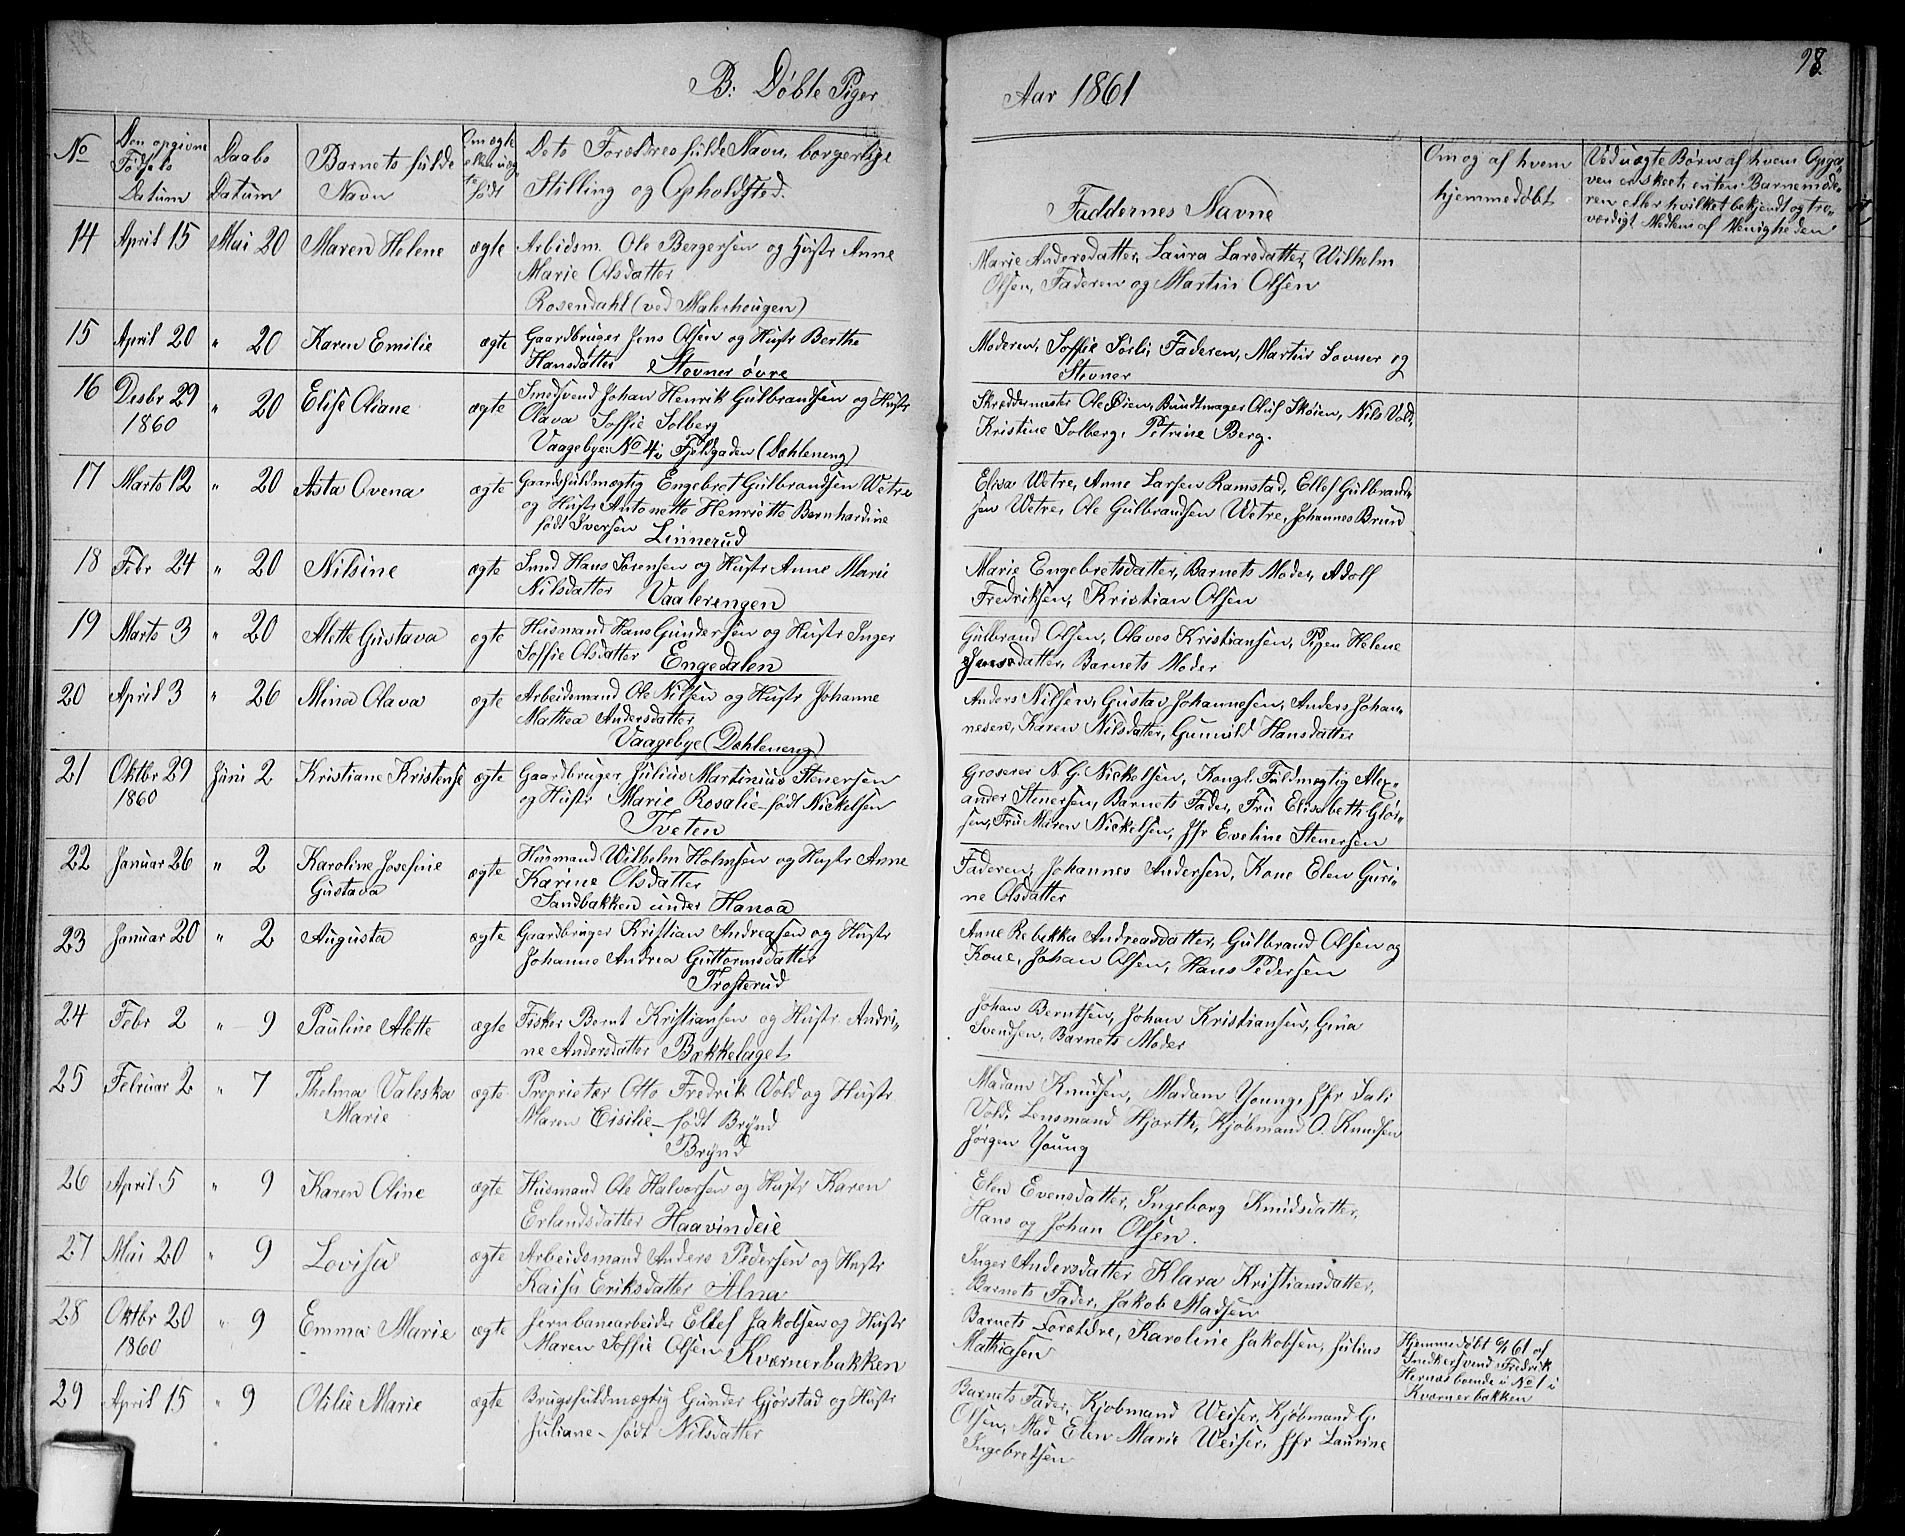 B: Døbte Piger
Aar 1861
98.
No
Den opgivne Fødsels Datum
Daabs Datum
Barnets fulde Navn
Om ægte eller uægte født
Dets Forældres fulde Navn, borgerlige Stilling og Opholdsted.
Faddernes Navne
Om og af hvem hjemmedøbt
Ved uægte Børn af hvem Opgaven er skeet, enten Barnemoderen eller hvilket bekjendt og troværdigt Medlem af Menigheden
14 April 15 Mai 20 Maren Helene ægte Arbidsm. Ole Bergersen og Hustr Anne
Marie Olsdatter
Rosendahl (ved Malerhougen)
Marie Andersdatter, Laura Larsdatter, Wilhelm
Olsen, Faderen og Martin Olsen
15 April 20 " 20 Karen Emilie ægte Gaardbruger Jens Olsen og Hustr Berthe
Hansdatter Stovner øvre
Moderen, Soffie Sørli, Faderen, Martin Sovner og
Stovner
16 Desbr 29 " 20 Elise Oliane ægte Smedsvend Johan Henrik Gulbrandsen og Hustr
1860 Olava Soffie Solberg
Vaagebyen No 4 i Fjeldgaden (Dæhleneng)
Skræddermester Ole Øien, Bundtmager Oluf Skøien, Nils Vold,
Kristine Solberg, Petrine Berg.
17 Marts 12 " 20 Asta Ovena ægte Gaardsfuldmægtig Engebret Gulbrandsen Wetre
og Hustr Antonette Henriette Bernhardine
født Iversen Linnerud
Elisa Wetre, Anne Larsen Ramstad, Ellef Gulbrand-
sen Wetre, Ole Gulbrandsen Wetre, Johannes Brun
18 Febr 24 " 20 Nilsine ægte Smed Hans Sørensen og Hustr Anne Marie
Nilsdatter Vaalerengen
Marie Engebretsdatter, Barnets Moder, Adolf
Fredriksen, Kristian Olsen
19 Marts 3 " 20 Alette Gustava ægte Husmand Hans Gundersen og Hustr Inger
Soffie Olsdatter Engedalen
Gulbrand Olsen, Olaves Kristiansen, Pigen Helene
Jensdatter, Barnets Moder
20 April 3 " 26 Mina Olava ægte Arbeidsmand Ole Nilsen og Hustr Johanne
Mathea Andersdatter
Vaagebye (Dæhleneng)
Anders Nilsen, Gustav Johannesen, Anders Johan-
nesen, Karen Nilsdatter, Gunild Hansdatter
21 Oktbr 29 Juni 2 Kristiane Kristense ægte Gaardbruger Julius Martinius Stenersen
1860 og Hustr Marie Rosalie født Nickelsen
Tveten
Groserer N. G. Nickelsen, Kongl. Fuldmægtig Alex-
ander Stenersen, Barnets Fader, Fru Elisabeth Glør-
sen, Fru Maren Nickelsen, Jfr Eveline Stenersen
22 Januar 26 " 2 Karoline Josefine ægte Husmand Wilhelm Holmsen og Hustr Anne
Gustava Karine Olsdatter
Sandbakken under Hanoa
Faderen, Johannes Andersen, Kone Elen Guri-
ne Olsdatter
23 Januar 20 " 2 Augusta ægte Gaardbruger Kristian Andreasen og Hustr
Johanne Andrea Guttormsdatter
Trosterud
Anne Rebekka Andreasdatter, Gulbrand Olsen og
Kone, Johan Olsen, Hans Pedersen
24 Febr 2 " 9 Pauline Alette ægte Fisker Bernt Kristiansen og Hustr Andri-
ne Andersdatter Bækkelaget
Johan Berntsen, Johan Kristiansen, Gina
Svendsen, Barnets Moder
25 Februar 2 " 7 Thelma Valeska ægte Proprietær Otto Fredrik Vold og Hustr
Marie Maren Cisilie født Brynd
Brynd
Madam Knudsen, Madam Young, Jfr Sali
Vold, Lensmand Hjorth, Kjøbmand O. Knudsen
Jørgen Young
26 April 5 " 9 Karen Oline ægte Husmand Ole Halvorsen og Hustr Karen
Erlandsdatter Haavindeie
Elen Evensdatter, Ingeborg Knudsdatter,
Hans og Johan Olsen.
27 Mai 20 " 9 Lovisa ægte Arbeidsmand Anders Pedersen og Hustr
Kaisa Eriksdatter Alna
Inger Andersdatter Klara Kristiansdatter,
Barnets Fader, Jakob Madsen
28 Oktbr 20 " 9 Emma Marie ægte Jernbanearbeider Ellef Jakobsen og Hustr
1860 Maren Soffie Olsen Kværnerbakken
Barnets Forældre, Karoline Jakobsen, Julius
Mathiasen
Hjemmedøbt 61 af
Snedkersvend Fredrik
Hernæs boende i No 1 i
Kværnerbakken
29 April 15 " 9 Otilie Marie ægte Brugsfuldmægtig Gunder Gjørstad og Hustr
Juliane født Nilsdatter
Barnets Fader, Kjøbmand Weiser, Kjøbmand G.
Olsen, Mad Elen Marie Weiser, Jfr Laurine
Ingebretsen